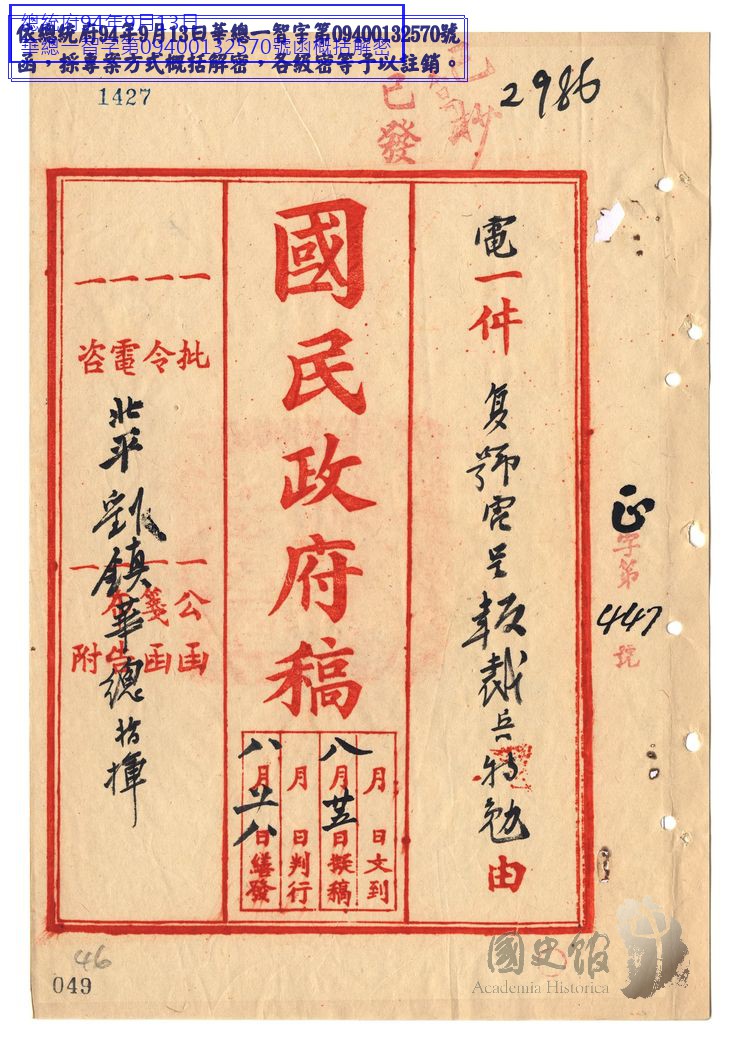 總統府94年9月13日
華總一智字第09400132570號函概括解密
依總統府94年9月13日華總一智字第09400132570號
函，採專案方式概括解密，各級密等予以註銷。
1427
已抄
已發
2986
正字第447號
電一件 复鄂電呈報裁兵特勉由
國民政府稿
月日文到
八月廿五日擬稿
月日判行
八月廿八日繕發
一批
一令
一電
一咨
一公函
一箋函
一布告
一附
北平劉鎮華總指揮
46
049
國史館
Academia Historica